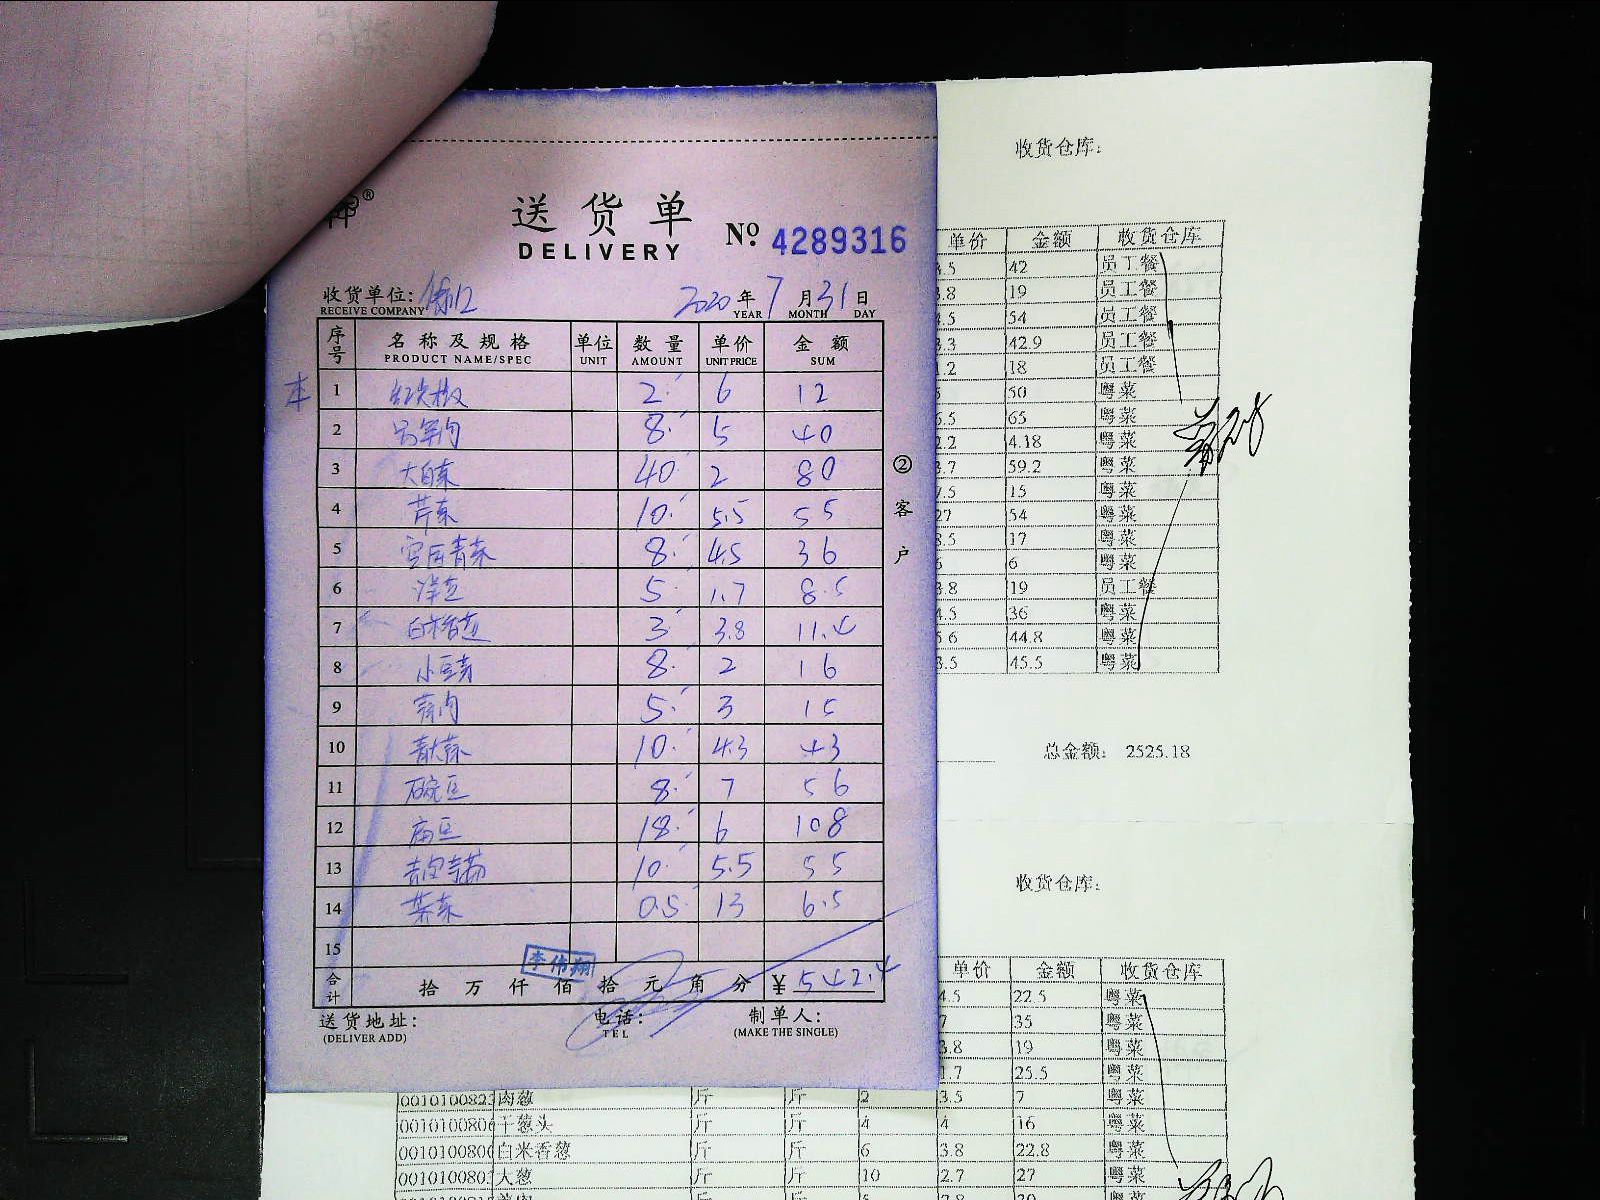 送货单
DELIVERY
No 4289316
收货单位:
RECEIVE COMPANY
2020年7月31日
YEAR MONTH DAY
序号 名称及规格 单位 数量 单价 金额
PRODUCT NAME/SPEC UNIT AMOUNT UNIT PRICE SUM
本
1 红尖椒 2 6 12
2 8 5 40
3 大白菜 40 2 80
4 芹菜 10 5.5 55
5 8 4.5 36
6 洋葱 5 1.7 8.5
7 白米香葱 3 3.8 11.4
8 小豆芽 8 2 16
9 蒜肉 5 3 15
10 青大蒜 10 4.3 43
11 豌豆 8 7 56
12 扁豆 18 6 108
13 10 5.5 55
14 0.5 13 6.5
15
李伟翔
合计 拾万仟佰拾元角分 ¥ 542.4
送货地址:
(DELIVER ADD)
电话:
TEL
制单人:
(MAKE THE SINGLE)
②客户
收货仓库:
单价 金额 收货仓库
.5 42 员工餐
.8 19 员工餐
.5 54 员工餐
.3 42.9 员工餐
.2 18 员工餐
50 粤菜
.5 65 粤菜
2.2 4.18 粤菜
3.7 59.2 粤菜
7.5 15 粤菜
27 54 粤菜
8.5 17 粤菜
6 粤菜
3.8 19 员工餐
4.5 36 粤菜
5.6 44.8 粤菜
3.5 45.5 粤菜
总金额: 2525.18
收货仓库:
单价 金额 收货仓库
4.5 22.5 粤菜
7 35 粤菜
3.8 19 粤菜
1.7 25.5 粤菜
001010082 肉葱 斤 斤 2 3.5 7 粤菜
001010080 干葱头 斤 斤 4 4 16 粤菜
001010080 白米香葱 斤 斤 6 3.8 22.8 粤菜
001010080 大葱 斤 斤 10 2.7 27 粤菜